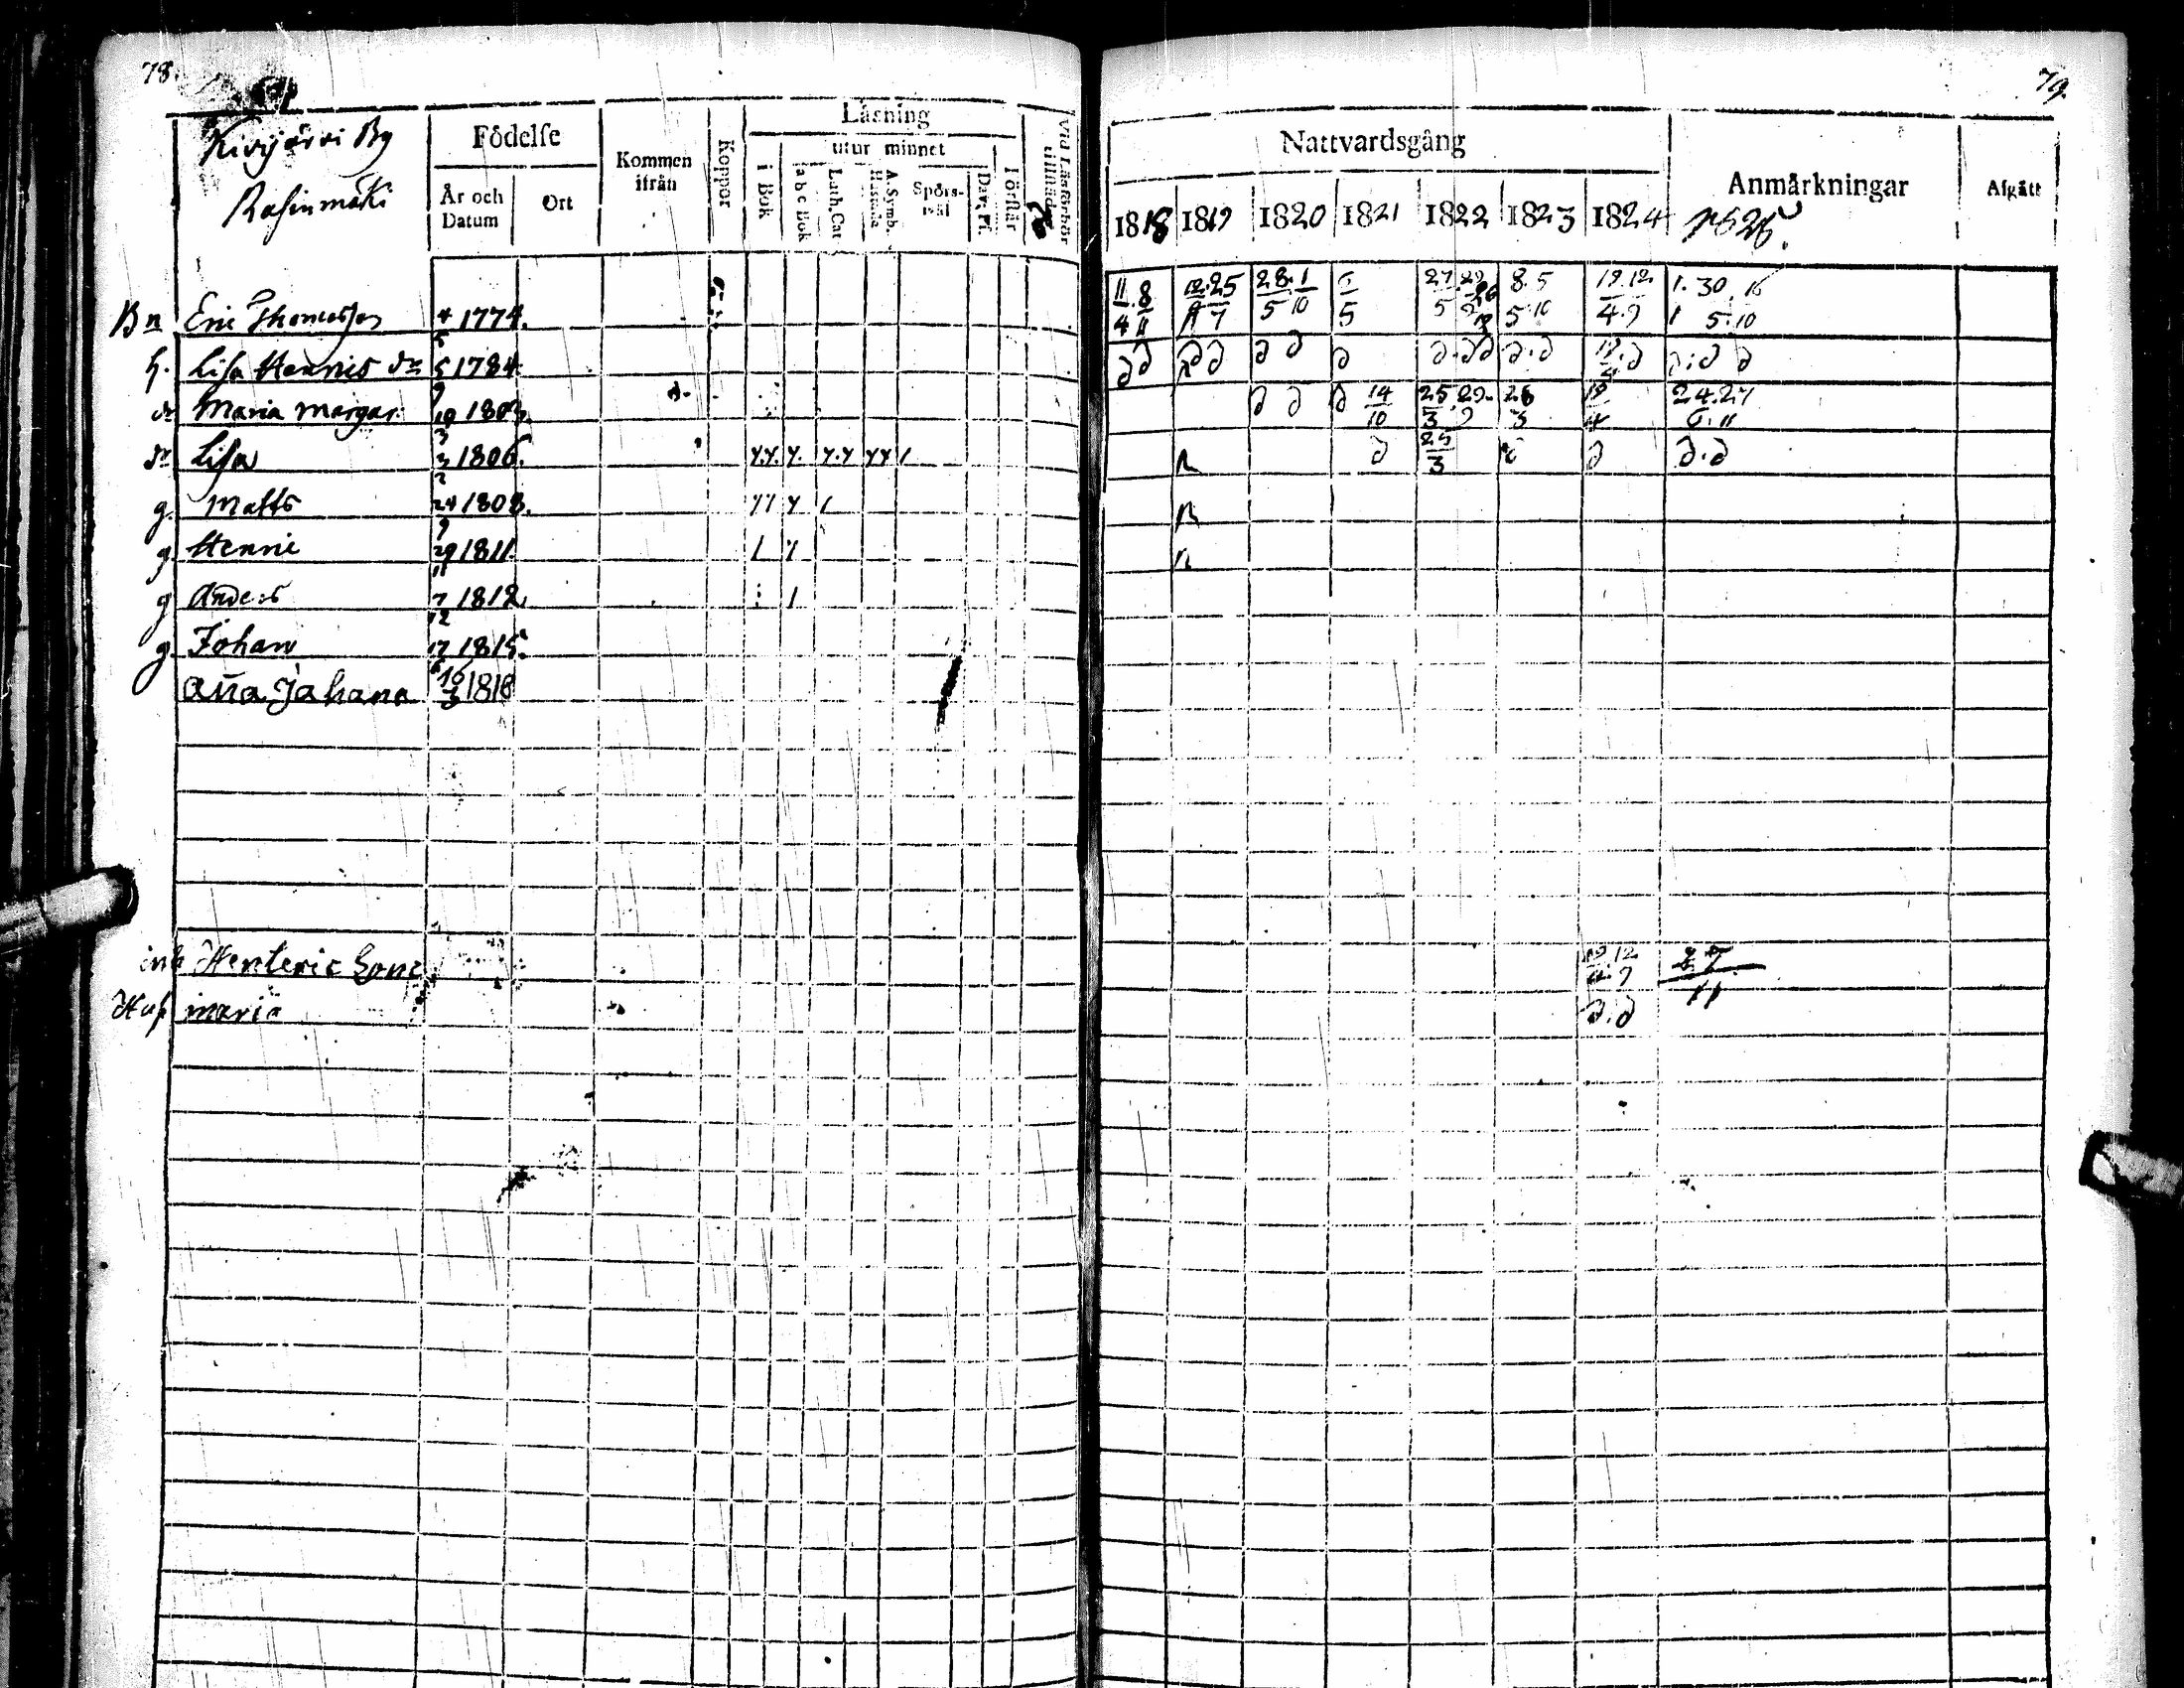 78.
Kivijärvi By
Rasinmäki
Födelse
År och Datum
Ort
Kommen ifrån
Koppor
Läsning
i Bok
utur minnet
a b c Bok
Luth. Cat
A. Symb. Hustafla
Spörs-mål
Dav. ps.
Förstår
Bn Eric Thomasson 4/5 1774.
h. Lisa Henrics dr 5/9 1784.
dr Maria Margar. 1803.
dr Lisa 3/2 1806.
g. Matts 24/9 1808.
g. Henric 29/11 1811.
g Anders 7/12 1812.
g. Johan 17 1815.
Aña Johana 1818
inh Henteric
Hus maria
79.
Nattvardsgång
Anmärkningar
Afgått
1818 1819 1820 1821 1822 1823 1824 1825.
11/4 . 8/11 25/7 28.1 5 10 6/5 27 5 8.5 5.10 19.12 4.9 1. 30. 16 5.10
d d d d d d d . d d d . d 19/4 . d d . d d
d d d 14/10 25/3 29. 26/3 19/4 24.27 6.11
d 25/3 d d . d
19.12 4.9 27/11
d . d